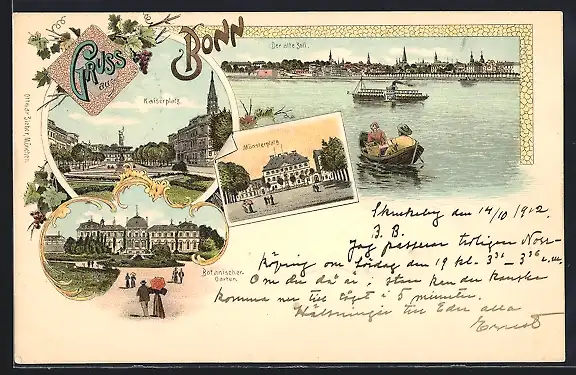 Gruss
aus
Bonn
Der alte Zoll.
Kaiserplatz.
Münsterplatz.
Botanischer
Garten.
Ottmar Zieher, München.
den 14/10 1902
B. B.
Jag passerar troligen Norr-
köping om lördag den 19 kl. 3³¹ - 3³⁶ e.m.
Om du då är i stan kan du kanske
komma ner till tåget i 5 minuter.
Hälsningar till Eder alla
Ernst